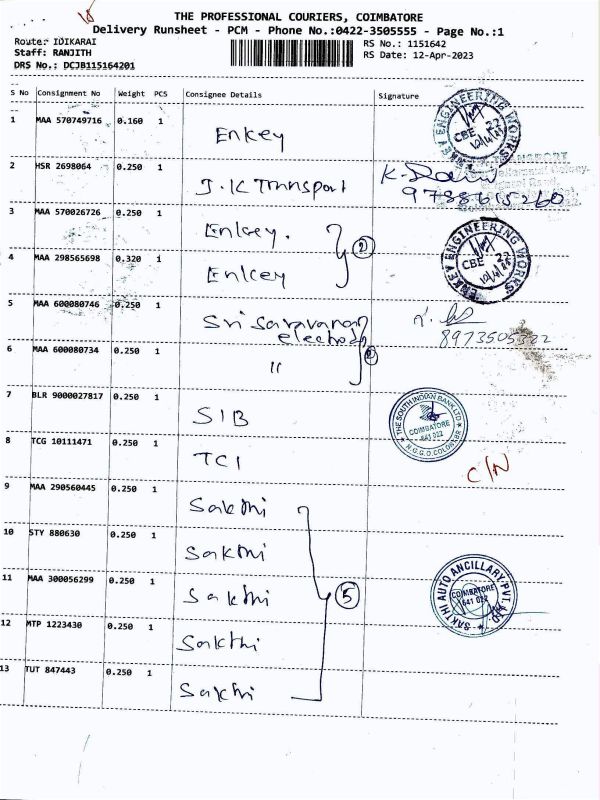 THE PROFESSIONAL COURIERS, COIMBATORE
Delivery Runsheet - PCM - Phone No.:0422-3505555 - Page No.:1
Route: IDIKARAI
RS No.: 1151642
Staff: RANJITH
RS Date: 12-Apr-2023
DRS No.: DCJB115164201
S No Consignment No Weight PCS Consignee Details Signature
1 MAA 570749716 0.160 1 Enkey
ENKEY ENGINEERING WORKS
CBE 22
2 HSR 2698064 0.250 1 J.K Transport
9788615260
3 MAA 570026726 0.250 1 Enkey.
2
4 MAA 298565698 0.320 1 Enkey
ENKEY ENGINEERING WORKS
CBE 22
5 MAA 600080746 0.250 1 Sri Saravanan
8973505322
6 MAA 600080734 0.250 1 "
7 BLR 9000027817 0.250 1 SIB
THE SOUTH INDIAN BANK LTD
COIMBATORE
641 022
N.G.G.O. COLONY BR
8 TCG 10111471 0.250 1 TCI
C/N
9 MAA 290560445 0.250 1 Sakthi
10 STY 880630 0.250 1 Sakthi
11 MAA 300056299 0.250 1 Sakthi
5
SAKTHI AUTO ANCILLARY PVT LTD
COIMBATORE
641 022
12 MTP 1223430 0.250 1 Sakthi
13 TUT 847443 0.250 1 Sakthi